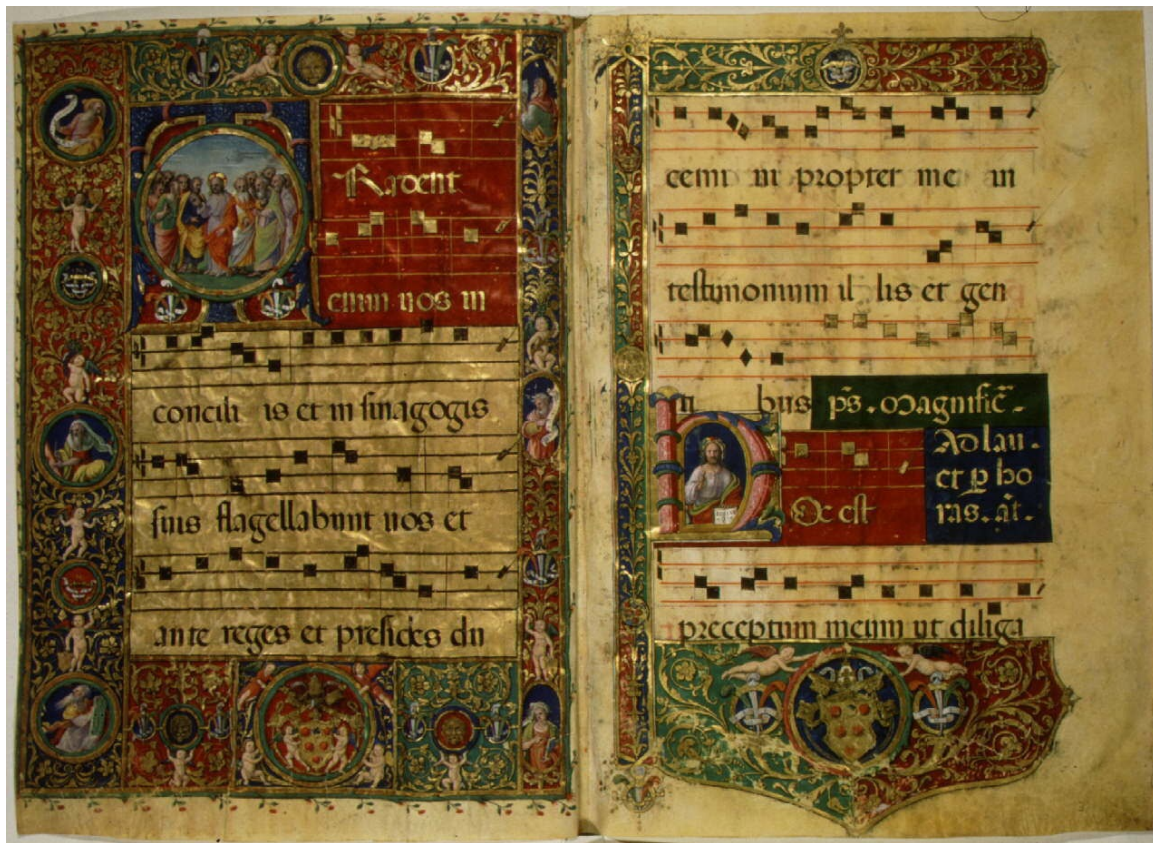 Radent
enim uos in
concili is et in sinagogis
suis flagellabunt uos et
ante reges et presides du
cemini propter me in
testimonium il lis et gen
ti bus ps. Magnific̄.
Ad lau.
et ꝑ ho
ras. añ.
Oc est
preceptum meum ut diliga